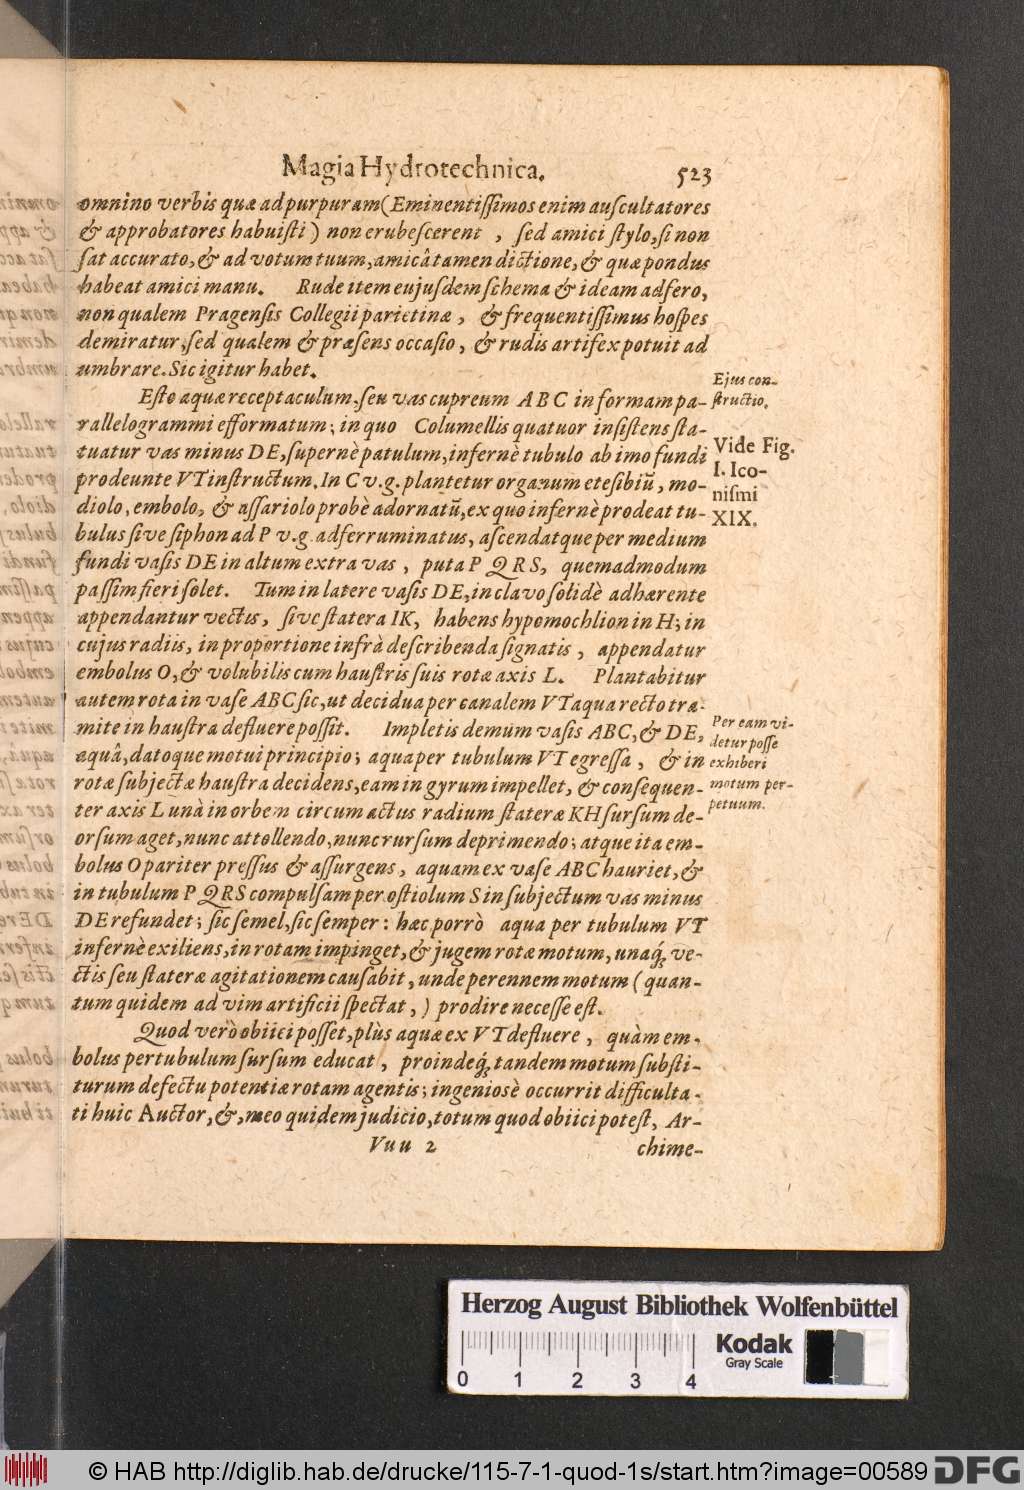 Magia Hydrotechnica. 523
omnino verbis quæ ad purpuram (Eminentiſſimos enim auſcultatores
& approbatores habuiſti) non erubeſcerent, ſed amici ſtylo, ſi non
ſat accurato, & ad votum tuum, amicâ tamen dictione, & quæ pondus
habeat amici manu. Rude item eujuſdem ſchema & ideam adfero,
non qualem Pragenſis Collegii parietinæ, & frequentiſſimus hoſpes
demiratur, ſed qualem & præſens occaſio, & rudis artifex potuit ad
umbrare. Sic igitur habet.
Eſto aquæ receptaculum, ſeu vas cupreum ABC in formam pa-
rallelogrammi efformatum; in quo Columellis quatuor inſiſtens ſta-
tuatur vas minus DE, ſupernè patulum, infernè tubulo ab imo fundi
prodeunte VT inſtructum. In C v.g. plantetur organum eteſibiũ, mo-
diolo, embolo, & aſſariolo probè adornatũ, ex quo infernè prodeat tu-
bulus ſive ſiphon ad P v.g. adferruminatus, aſcendatque per medium
fundi vaſis DE in altum extra vas, puta P QRS, quemadmodum
paſſim fieri ſolet. Tum in latere vaſis DE, in clavo ſolidè adhærente
appendantur vectis, ſive ſtatera IK, habens hypomochlion in H; in
cujus radiis, in proportione infrà deſcribenda ſignatis, appendatur
embolus O, & volubilis cum hauſtris ſuis rotæ axis L. Plantabitur
autem rota in vaſe ABC ſic, ut decidua per canalem VT aqua recto tra-
mite in hauſtra defluere poſſit. Impletis demum vaſis ABC, & DE,
aquâ, datoque motui principio; aqua per tubulum VT egreſſa, & in
rotæ ſubjectæ hauſtra decidens, eam in gyrum impellet, & conſequen-
ter axis L unà in orbem circumactus radium ſtateræ KH ſurſum de-
orſum aget, nunc attollendo, nunc rurſum deprimendo; atque ita em-
bolus O pariter preſſus & aſſurgens, aquam ex vaſe ABC hauriet, &
in tubulum P QRS compulſam per oſtiolum S in ſubjectum vas minus
DE refundet; ſic ſemel, ſic ſemper: hæc porrò aqua per tubulum VT
infernè exiliens, in rotam impinget, & jugem rotæ motum, unaq́ꝫ ve-
ctis ſeu ſtateræ agitationem cauſabit, unde perennem motum (quan-
tum quidem ad vim artificii ſpectat,) prodire neceſſe eſt.
Quod verò obiici poſſet, plùs aquæ ex VT defluere, quàm em-
bolus per tubulum ſurſum educat, proindeq́ꝫ tandem motum ſubſti-
turum defectu potentiæ rotam agentis; ingenioſè occurrit difficulta-
ti huic Auctor, &, meo quidem judicio, totum quod obiici poteſt, Ar-
Vuu 2 chime-
Ejus con-
ſtructio.
Vide Fig.
I. Ico-
niſmi
XIX.
Per eam vi-
detur poſſe
exhiberi
motum per-
petuum.
Herzog August Bibliothek Wolfenbüttel
0 1 2 3 4
Kodak
Gray Scale
© HAB http://diglib.hab.de/drucke/115-7-1-quod-1s/start.htm?image=00589
DFG